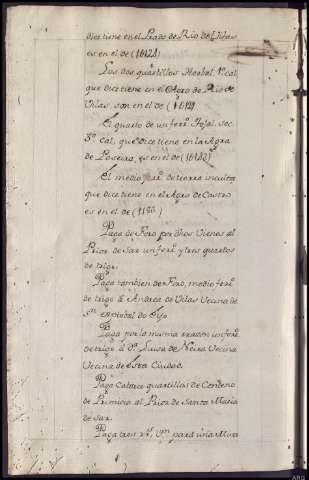 dice tiene en el Prado de Rio de Vilas
es en el de (1612½)
Los dos quartillos Herbal 1ª cal.
que dice tiene en el Agro de Rio de
Vilas, son en el de (
El quarto de un ferr.º Tojal sec.
3ª cal. que dice tiene en la Agra
de Loureiro, es en el de (
El medio ferr.º de tierra inculta
que dice tiene en el Agro de Castro
es en el de (
Paga de Foro por dhos Vienes al
Prior de Sar un ferr.º y tres quartos
de trigo.
Paga tambien de Foro, medio ferr.º
de trigo á Andrea de Vilas Vecina de
Sn. xptobal do Eijo
Paga por la misma razon un ferr.º
de trigo á Dª Luisa de Neira Vecina
Vecina de esta Ciudad.
Paga Catorce quartillos de Centeno
de Primicia al Prior de Santa Maria
de Sar.
Paga tres rs. vn. para una Misa